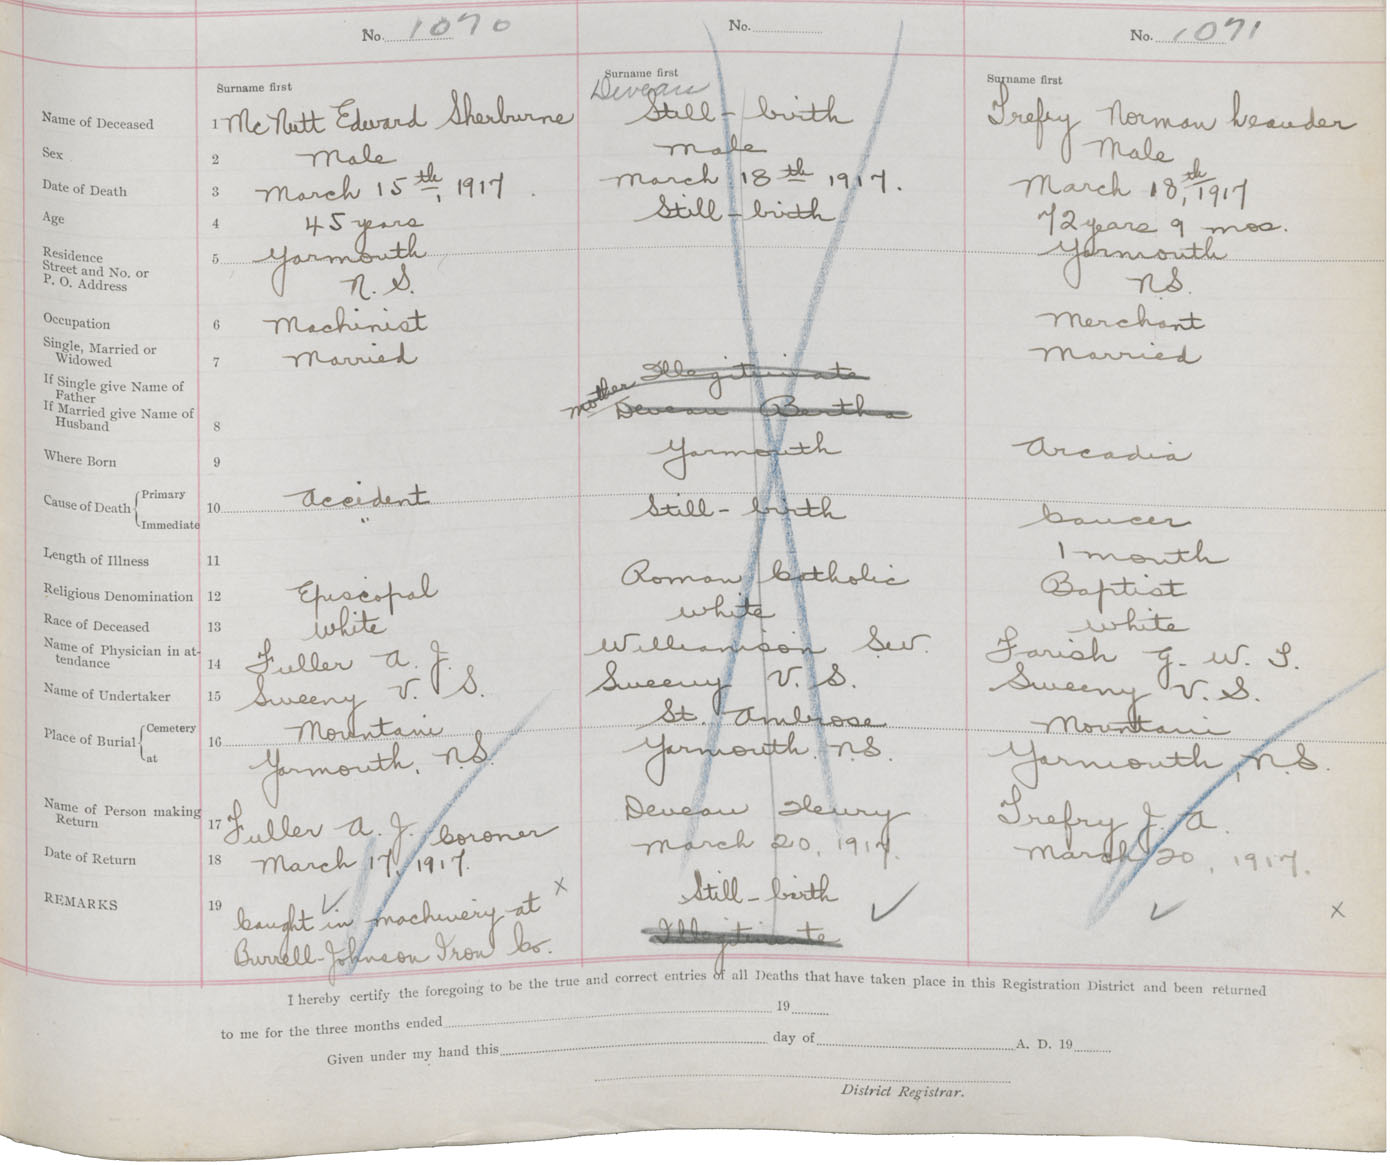 No. 1070 No. No. 1071
Surname first Surname first Surname first
Deveau
Name of Deceased 1 McNutt Edward Sherburne Still-birth Trefry Norman Leander
Sex 2 Male male Male
Date of Death 3 March 15th, 1917 March 18th 1917. March 18th, 1917
Age 4 45 years Still-birth 72 years 9 mos.
Residence
Street and No. or
P. O. Address 5 Yarmouth Yarmouth
N. S. N.S.
Occupation 6 Machinist Merchant
Single, Married or
Widowed 7 Married Married
Illegitimate
If Single give Name of
Father
If Married give Name of
Husband 8 mother Deveau Bertha
Where Born 9 Yarmouth Arcadia
Cause of Death Primary
Immediate 10 Accident Still-birth Cancer
"
Length of Illness 11 1 month
Religious Denomination 12 Episcopal Roman Catholic Baptist
Race of Deceased 13 white white white
Name of Physician in at-
tendance 14 Fuller A. J. Williamson S.W. Farish G. W. T.
Name of Undertaker 15 Sweeny V. S. Sweeny V. S. Sweeny V. S.
Place of Burial Cemetery
at 16 Mountain St. Ambrose Mountain
Yarmouth, N.S. Yarmouth. N.S. Yarmouth, N.S.
Name of Person making
Return 17 Fuller A. J. Coroner Deveau Henry Trefry J. A.
Date of Return 18 March 17, 1917. March 20, 1917. March 20, 1917.
REMARKS 19 Caught in machinery at Still-birth
Burrell-Johnson Iron Co. Illegitimate
I hereby certify the foregoing to be the true and correct entries of all Deaths that have taken place in this Registration District and been returned
to me for the three months ended 19
Given under my hand this day of A. D. 19
District Registrar.